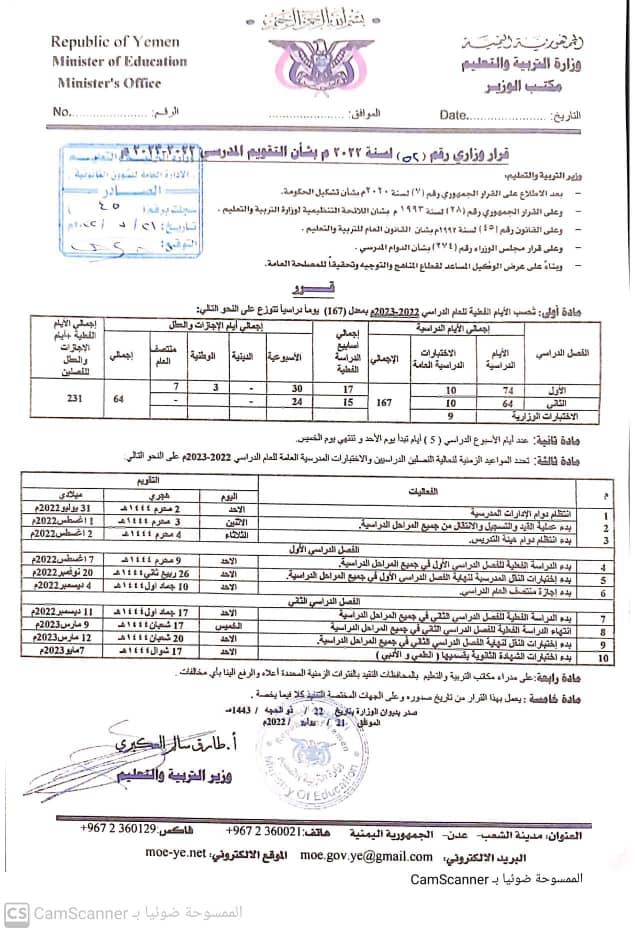 بسم الله الرحمن الرحيم
Republic of Yemen
Minister of Education
Minister's Office
الجمهورية اليمنية
وزارة التربية والتعليم
مكتب الوزير
No. الرقم: الموافق: Date التاريخ:
قرار وزاري رقم (٥٢) لسنة ٢٠٢٢ م بشأن التقويم المدرسي ٢٠٢٢-٢٠٢٣ م
الادارة العامة للشئون القانونية
الصادر
وزير التربية والتعليم:
– بعد الاطلاع على القرار الجمهوري رقم (٧) لسنة ٢٠٢٠م بشأن تشكيل الحكومة.
– وعلى القرار الجمهوري رقم (٢٨) لسنة ١٩٩٣ م بشأن اللائحة التنظيمية لوزارة التربية والتعليم .
– وعلى القانون رقم (٤٥) لسنة ١٩٩٢م بشأن القانون العام للتربية والتعليم .
– وعلى قرار مجلس الوزراء رقم (٢٧٤) بشأن الدوام المدرسي.
– وبناءً على عرض الوكيل المساعد لقطاع المناهج والتوجيه وتحقيقاً للمصلحة العامة.
قــرر
مادة أولى: تُحسب الأيام الفعلية للعام الدراسي 2022-2023م بمعدل (167) يوماً دراسياً تتوزع على النحو التالي:
الفصل الدراسي إجمالي الأيام الدراسية إجمالي أسابيع الدراسة الفعلية إجمالي أيام الإجازات والعطل إجمالي الأيام الفعلية +أيام الإجازات والعطل للفصلين
الأيام الدراسية الاختبارات الدراسية العامة الإجمالي الأسبوعية الدينية الوطنية منتصف العام إجمالي
الأول 74 10 167 17 30 - 3 7 64 231
الثاني 64 10 15 24 - - -
الاختبارات الوزارية 9
مادة ثانية: عدد أيام الأسبوع الدراسي ( 5 ) أيام تبدأ يوم الأحد و تنتهي يوم الخميس.
مادة ثالثة: تحدد المواعيد الزمنية لفعالية الفصلين الدراسيين والاختبارات المدرسية العامة للعام الدراسي 2022-2023م على النحو التالي.
م الفعاليات التقويم
اليوم هجري ميلادي
1 انتظام دوام الإدارات المدرسية الأحد 2 محرم ١٤٤٤هـ 31 يوليو2022م
2 بدء عملية القيد والتسجيل والانتقال من جميع المراحل الدراسية. الاثنين 3 محرم ١٤٤٤هـ 1 أغسطس2022م
3 بدء انتظام دوام هيئة التدريس. الثلاثاء 4 محرم ١٤٤٤هـ 2 أغسطس2022م
الفصل الدراسي الأول
4 بدء الدراسة الفعلية للفصل الدراسي الأول في جميع المراحل الدراسية. الأحد 9 محرم ١٤٤٤هـ 7 أغسطس2022م
5 بدء إختبارات النقل المدرسية لنهاية الفصل الدراسي الأول في جميع المراحل الدراسية. الأحد 26 ربيع ثاني ١٤٤٤هـ 20 نوفمبر2022م
6 بدء إجازة منتصف العام الدراسي. الأحد 10 جماد أول ١٤٤٤هـ 4 ديسمبر2022م
الفصل الدراسي الثاني
7 بدء الدراسة الفعلية للفصل الدراسي الثاني في جميع المراحل الدراسية الأحد 17 جماد أول ١٤٤٤هـ 11 ديسمبر2022م
8 انتهاء الدراسة الفعلية للفصل الدراسي الثاني في جميع المراحل الدراسية الخميس 17 شعبان ١٤٤٤هـ 9 مارس2023م
9 بدء إختبارات النقل لنهاية الفصل الدراسي الثاني في جميع المراحل الدراسية. الأحد 20 شعبان ١٤٤٤هـ 12 مارس2023م
10 بدء اختبارات الشهادة الثانوية بقسميها ( العلمي و الأدبي ) الأحد 17 شوال ١٤٤٤هـ 7مايو2023م
مادة رابعة: على مدراء مكاتب التربية و التعليم بالمحافظات التقيد بالفترات الزمنية المحددة أعلاه والرفع الينا بأي مخالفات .
مادة خامسة : يعمل بهذا القرار من تاريخ صدوره وعلى الجهات المختصة التنفيذ كلا فيما يخصه .
صدر بديوان الوزارة بتاريخ 22 / ذو الحجه / 1443هـ
الموافق 21 / يوليو / 2022م
أ. طارق سالم العكبري
وزير التربية والتعليم
Ministry Of Education
العنوان: مدينة الشعب- عدن- الجمهورية اليمنية هاتف: 360021 2 967+ فاكس: 360129 2 967+
البريد الالكتروني: moe.gov.ye@gmail.com الموقع الالكتروني: moe-ye.net
الممسوحة ضوئيا بـ CamScanner
CS CamScanner الممسوحة ضوئيا بـ